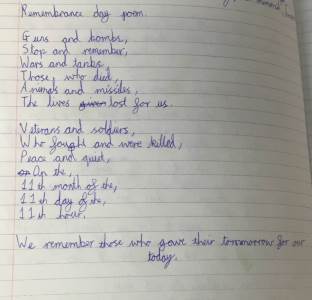 Remembrance day poem.
Guns and bombs,
Stop and remember,
Wars and tanks,
Those who died,
Animals and missiles,
The lives lost for us.
Veterans and soldiers,
Who fought and were killed,
Peace and quiet,
On the,
11th month of the,
11th day of the,
11th hour,
We remember those who gave their tommorrow for our
today.